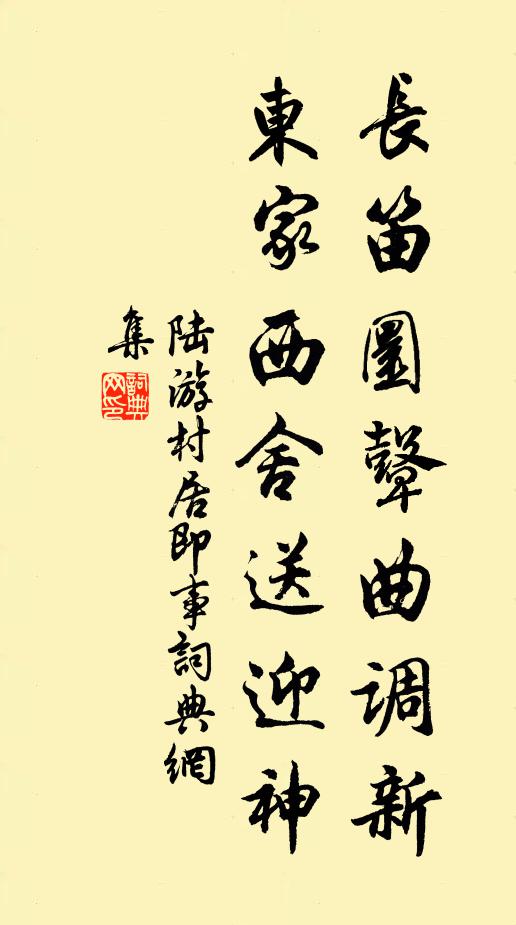 長笛圓鼙曲調新
東家西舍送迎神
陆游村居即事詞典網
集
詞典
网印